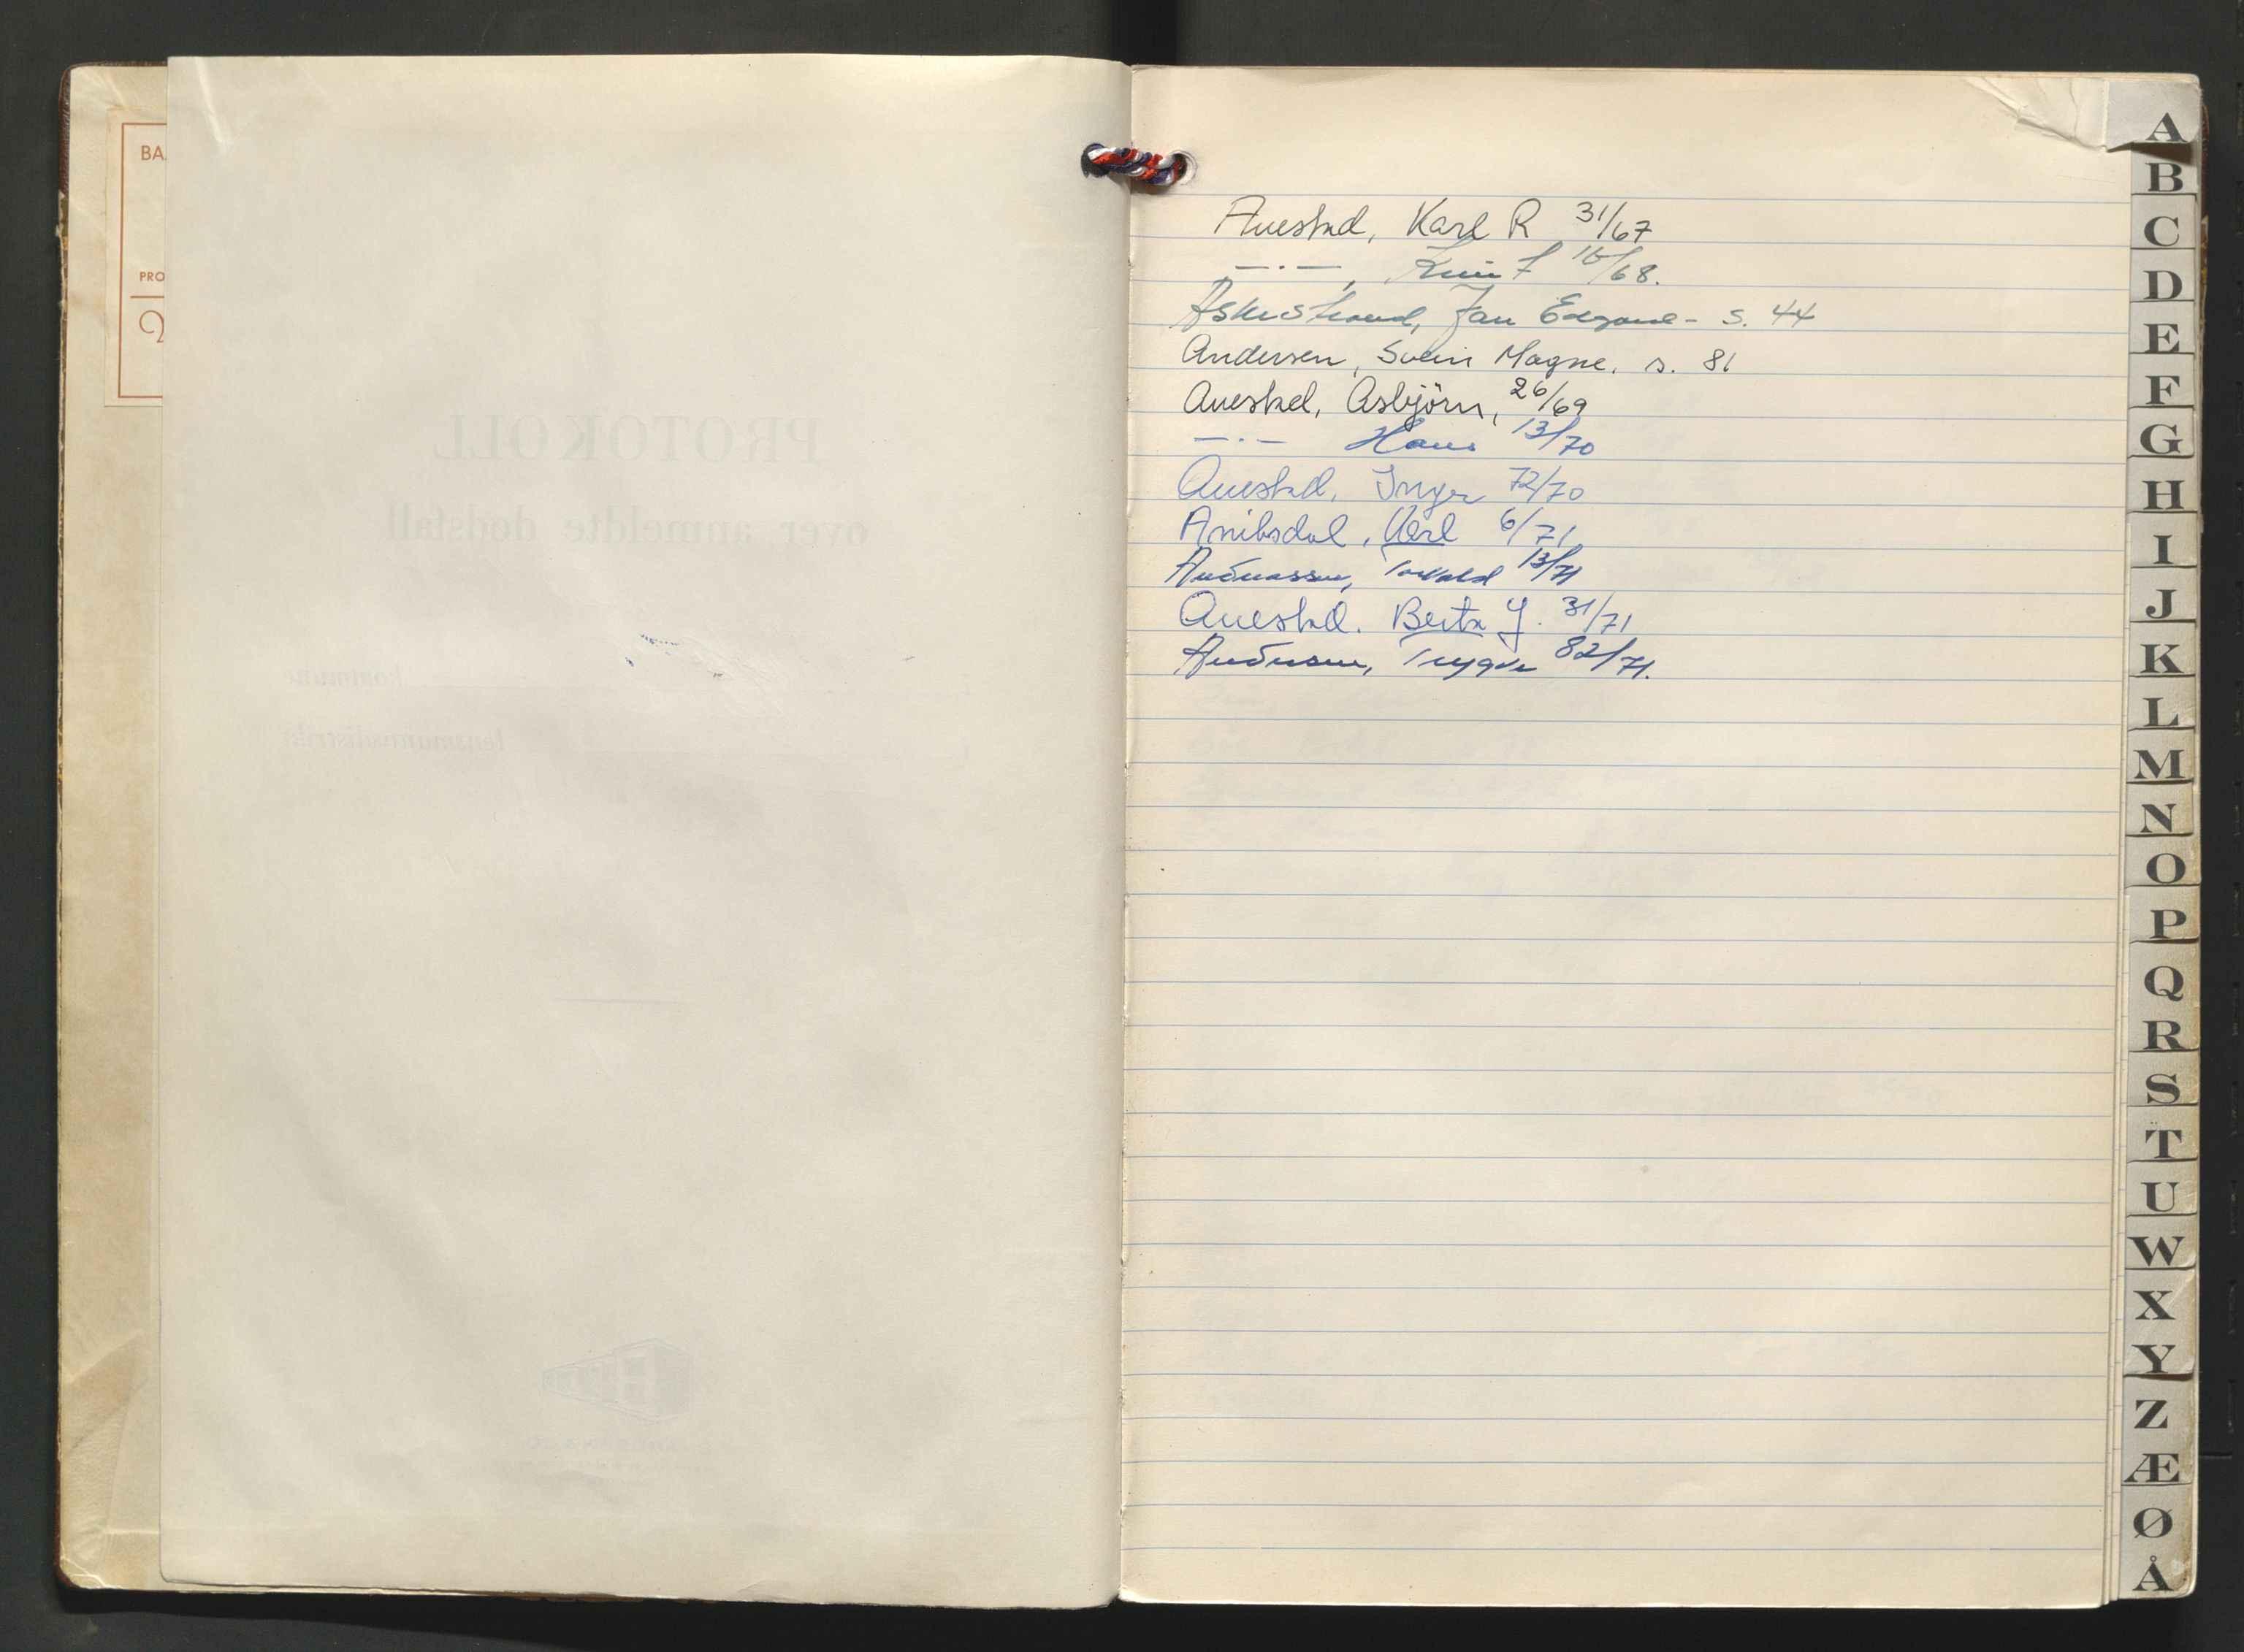 BA
PRO
PROTOKOLL
over anmeldte dødsfall
i kommune
i lensmannsdistrikt
Auestad, Karl R 31/67
—·—, 16/68.
Jan s. 44
Andersen, Svein Magne. s. 81
Auestad, Asbjörn, 26/69
—·— Hans 13/70
Auestad, Inger 72/70
Karl 6/71
Andreassen, Torvald 13/71
Auestad. Berta J. 31/71
Andersen, Trygve 82/71.
A
B
C
D
E
F
G
H
I
J
K
L
M
N
O
P
Q
R
S
T
U
W
X
Y
Z
Æ
Ø
Å